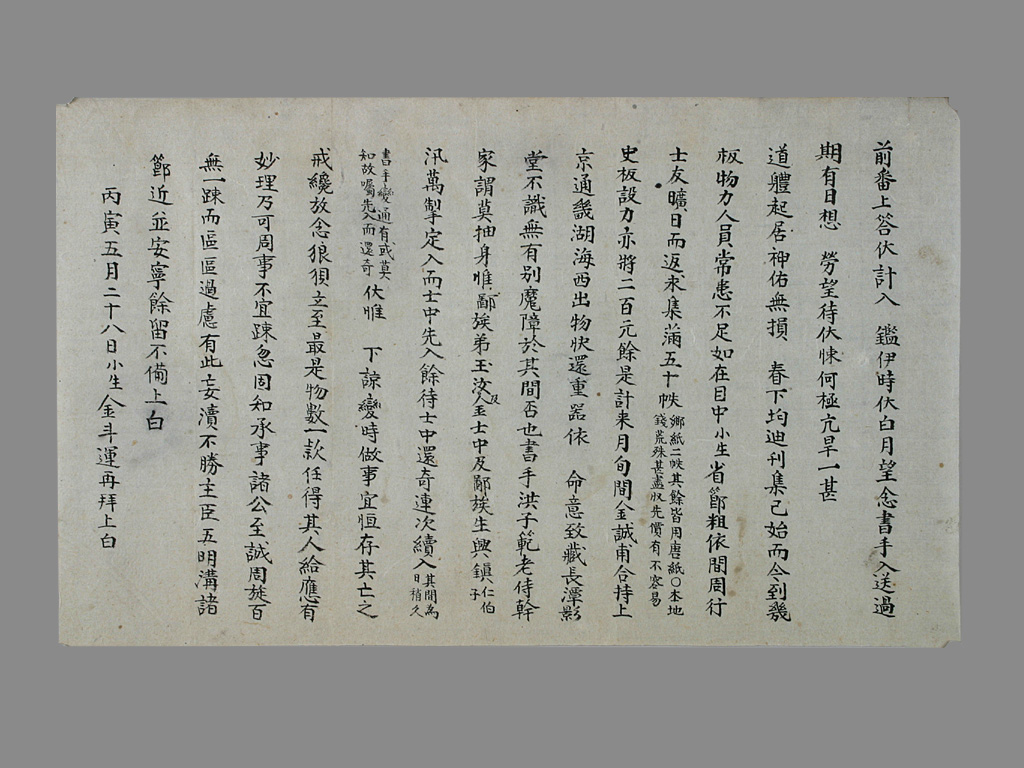 前番上答伏計入 鑑伊時伏白月望念書手入送過
期有日想 勞望待伏悚何極亢旱一甚
道軆起居神佑無損 春下均迪刊集已始而今到幾
板物力人員常患不足如在目中小生省節粗依間周行
士友曠日而返求集滿五十帙 鄉紙二帙其餘皆用唐紙○本地
錢荒殊甚盡收先價有不容易
史板設力亦將二百元餘是計来月旬間金誠甫合持上
京通畿湖海西出物快還重器依 命意致藏長潭影
堂不識無有別魔障於其間否也書手洪子範老侍幹
家謂莫抽身惟鄙族弟玉汝及金士中及鄙族生興鎮仁伯
子
汛萬掣定入而士中先入餘待士中還奇連次續入其間為
日稍久
書手變通有或莫
知故囑先入而還奇 伏惟 下諒變時做事宜恒存其亡之
戒纔放念狼狽立至最是物數一款任得其人給應有
妙理乃可周事不宜踈忽固知承事諸公至誠周旋百
無一踈而區區過慮有此妄瀆不勝主臣五明溝諸
節近並安寧餘留不備上白
丙寅五月二十八日小生金斗運再拜上白